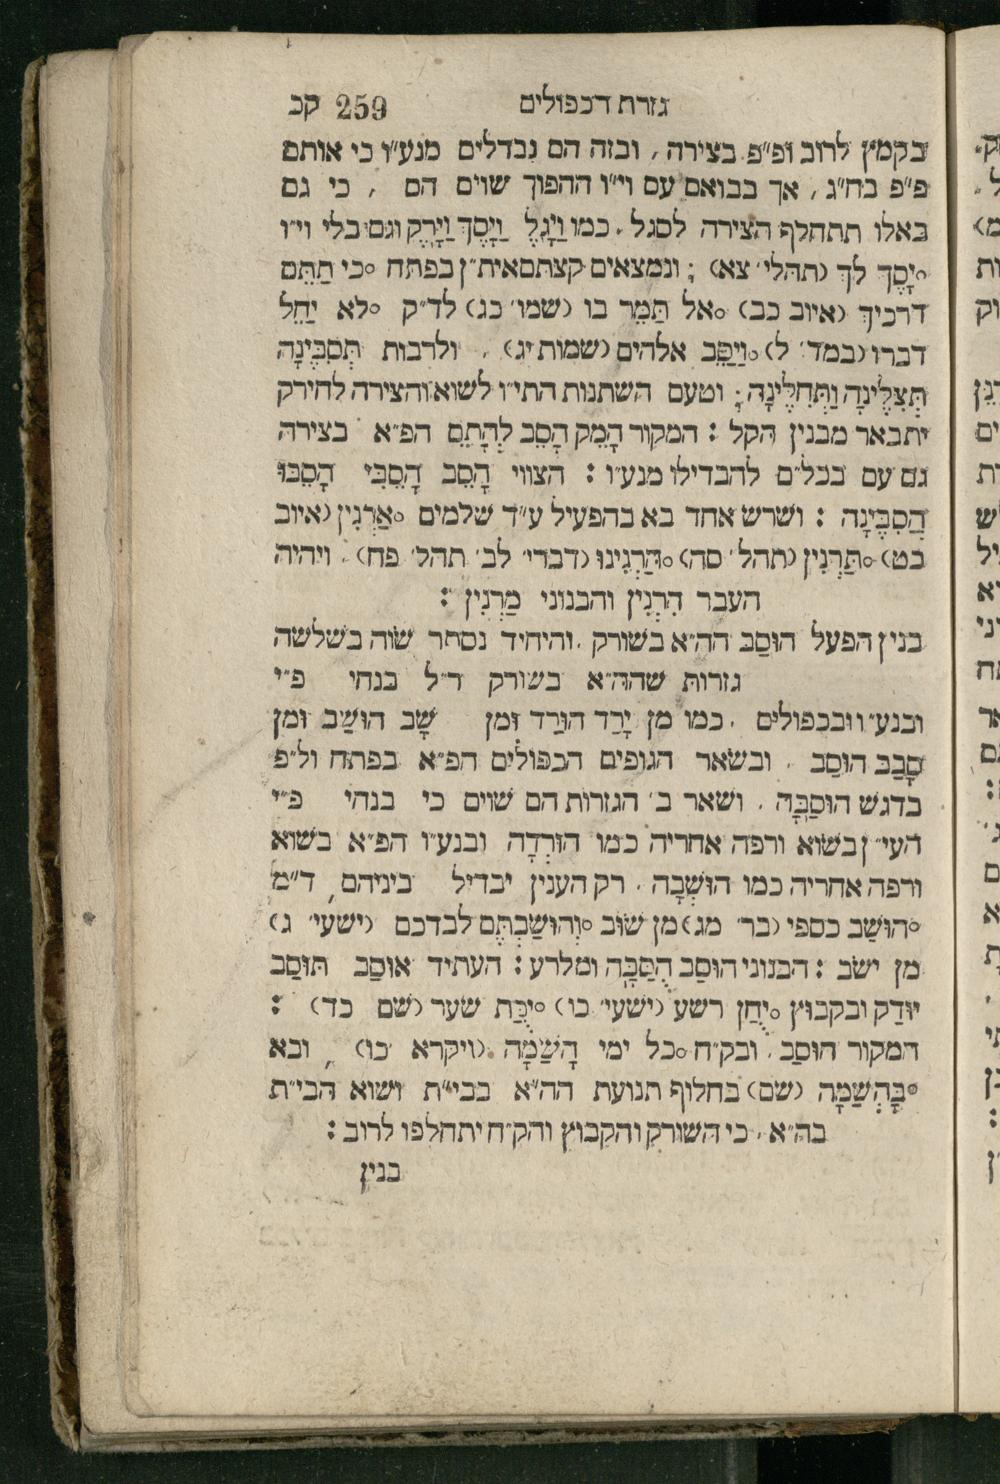 גזרת הכפולים 259 קכ
בקמץ לרוב ופ״פ בצירה, ובזה הם נבדלים מנע״ו כי אותם
פ״פ בח״ג, אך בבואם עם וי״ו ההפוך שוים הם, כי גם
באלו תתחלף הצירה לסגל. כמו וַיָּגֶל וַיָּסֶךְ וַיָּרֶק וגם בלי וי״ו
°יָסֶךְ לך (תהלי׳ צא); ונמצאים קצתם אית״ן בפתח °כי תַתֵּם
דרכיך (איוב כב) °אל תַּמֵּר בו (שמו׳ כג) לד״ק °לא יַחֵל
דברו (במד׳ ל) °וַיַּסֵּב אלהים (שמות יג). ולרבות תְּסִבֶּינָה
תְּצִלֶּינָה וַתְּחִלֶּינָה; וטעם השתנות התי״ו לשוא והצירה לחירק
יתבאר מבנין הקל: המקור הָמֵק הָסֵב לְהָתֵם הפ״א בצירה
גם עם בכל״ם להבדילו מנע״ו: הצווי הָסֵב הָסֵבִּי הָסֵבּוּ
הֲסִבֶּינָה: ושרש אחד בא בהפעיל ע״ד שלמים °אַרְנִין (איוב
כט) °תַּרְנִין (תהל׳ סה) °הַרְנִינוּ (דברי׳ לב׳ תהל׳ פח). ויהיה
העבר הִרְנִין והבנוני מַרְנִין:
בנין הפעל הוּסַב הה״א בשורק. והיחיד נסתר שוה בשלשה
גזרות שהה״א בשורק ר״ל בנחי פ״י
ובנע״ו ובכפולים. כמו מן יָרַד הוּרַד ומן שָׁב הוּשַׁב ומן
סָבַב הוּסַב. ובשאר הגופים הכפולים הפ״א בפתח ול״פ
בדגש הוּסַבָּה. ושאר ב׳ הגזרות הם שוים כי בנחי פ״י
העי״ן בשוא ורפה אחריה כמו הוּרְדָה ובנע״ו הפ״א בשוא
ורפה אחריה כמו הוּשְׁבָה. רק הענין יבדיל ביניהם, ד״מ
°הוּשַׁב כספי (בר׳ מג) מן שׁוּב °וְהוּשַׁבְתֶּם לבדכם (ישעי׳ ג)
מן ישב: הבנוני הוּסַב הֻסַבָּה ומלרע: העתיד אוּסַב תּוּסַב
יוּדַק ובקבוץ °יֻחַן רשע (ישעי׳ כו) °יֻכַּת שער (שם כד):
המקור הוּסַב. ובק״ח °כל ימי הָשַׁמָּה (ויקרא כו), ובא
°בָּהְשַׁמָּה (שם) בחלוף תנועת הה״א בבי״ת ושוא הבי״ת
בה״א. כי השורק והקבוץ והק״ח יתחלפו לרוב:
בנין